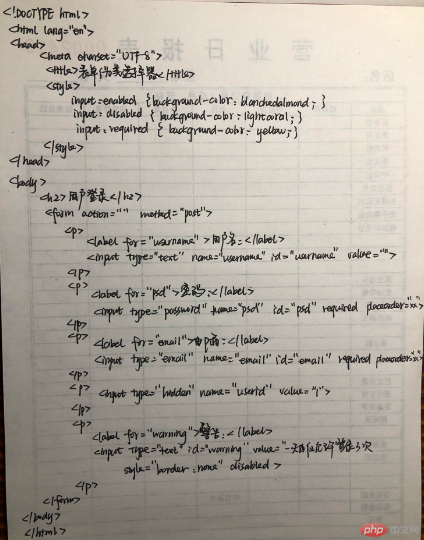 <!DOCTYPE html>
<html lang="en">
<head>
<meta charset="UTF-8">
<title>表单伪类选择器</title>
<style>
input:enabled {background-color: blanchedalmond; }
input: disabled { background-color: lightcoral; }
input: required { background-color: yellow; }
</style>
</head>
<body>
<h2>用户登录</h2>
<form action="" method="post">
<p>
<label for="username">用户名:</label>
<input type="text" name="username" id="username" value="">
</p>
<p>
<label for="psd">密码:</label>
<input type="password" name="psd" id="psd" required
</p>
<p>
<label for="email">邮箱:</label>
<input type="email" name="email" id="email" required
</p>
<p>
<input type="hidden" name="userid" value="1">
</p>
<p>
<label for="warning">警告:</label>
<input type="text" id="warning" value="一天内仅允许登录3次
style="border:none" disabled>
</p>
</form>
</body>
</html>
营业日报表
php中文网